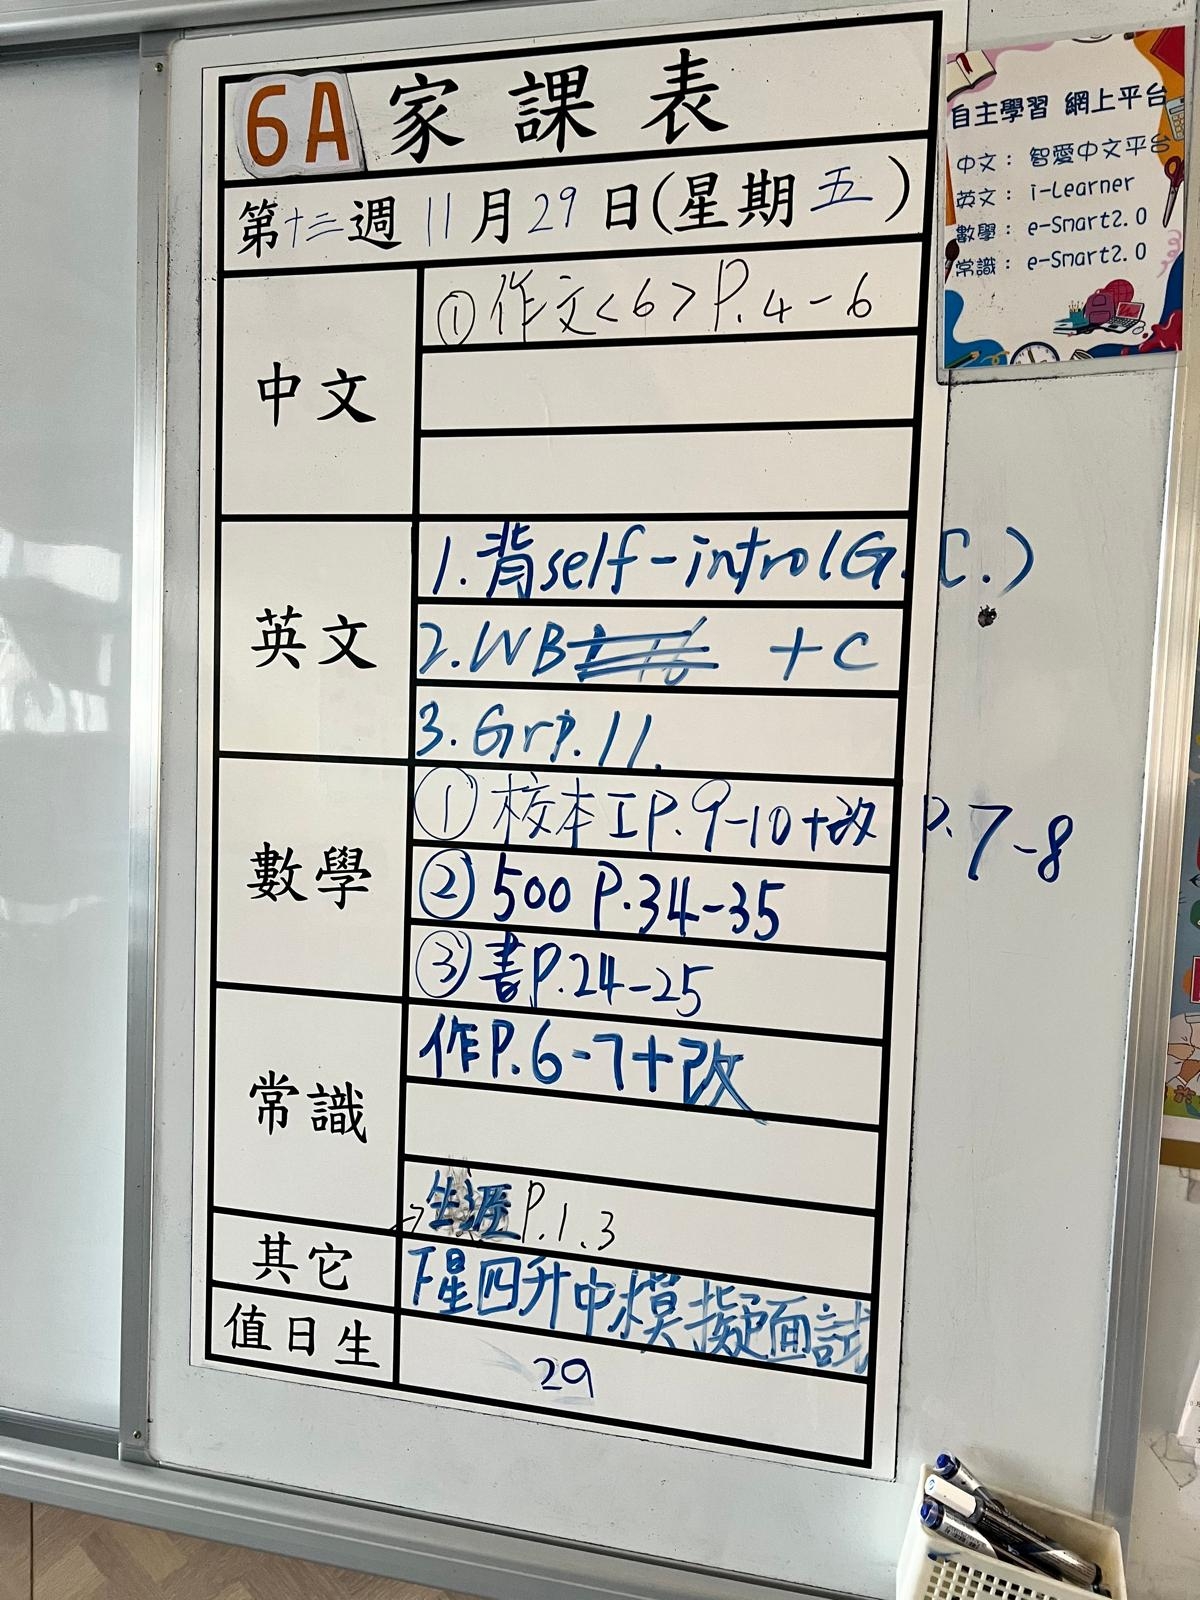 6A 家課表
第十三週 11月29日(星期五)
中文
① 作文<6>P.4-6
英文
1.背self-intro(G.C.)
2.WB +C
3.Gr P.11.
數學
① 校本工P.9-10+改 P.7-8
② 500 P.34-35
③ 書P.24-25
常識
作P.6-7+改
→生涯P.1.3
其它
下星四升中模擬面試
值日生
29
自主學習 網上平台
中文: 智愛中文平台
英文: i-Learner
數學: e-Smart2.0
常識: e-Smart2.0